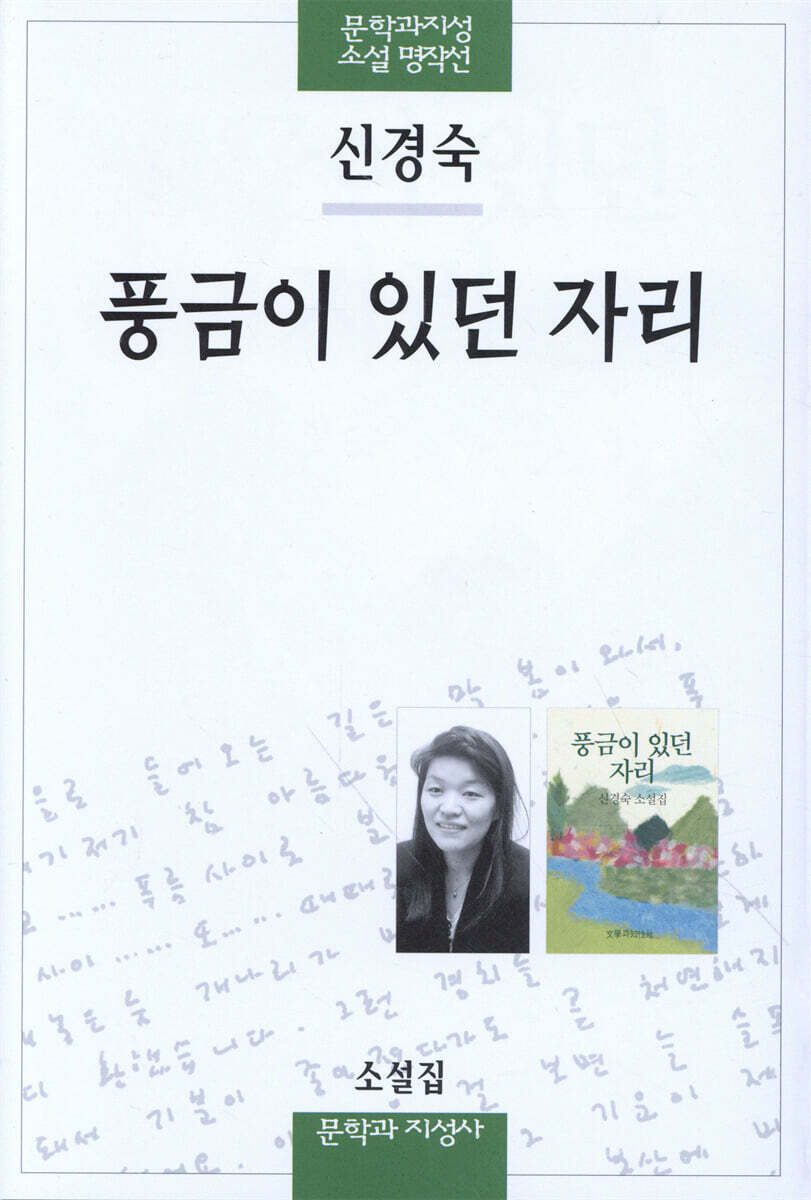 문학과지성
소설 명작선
신경숙
풍금이 있던 자리
길은 막 봄이 와서,
들어오는
여기저기 참 아름다
푸릇 사이로
사이...... 또...... 때때로
개나리가
환했습니다. 그런 경치를
기분이 좋아졌다가도
보면 늘 슬프
돼서
기운이
풍금이 있던
자리
신경숙 소설집
文學과知性社
소설집
문학과 지성사